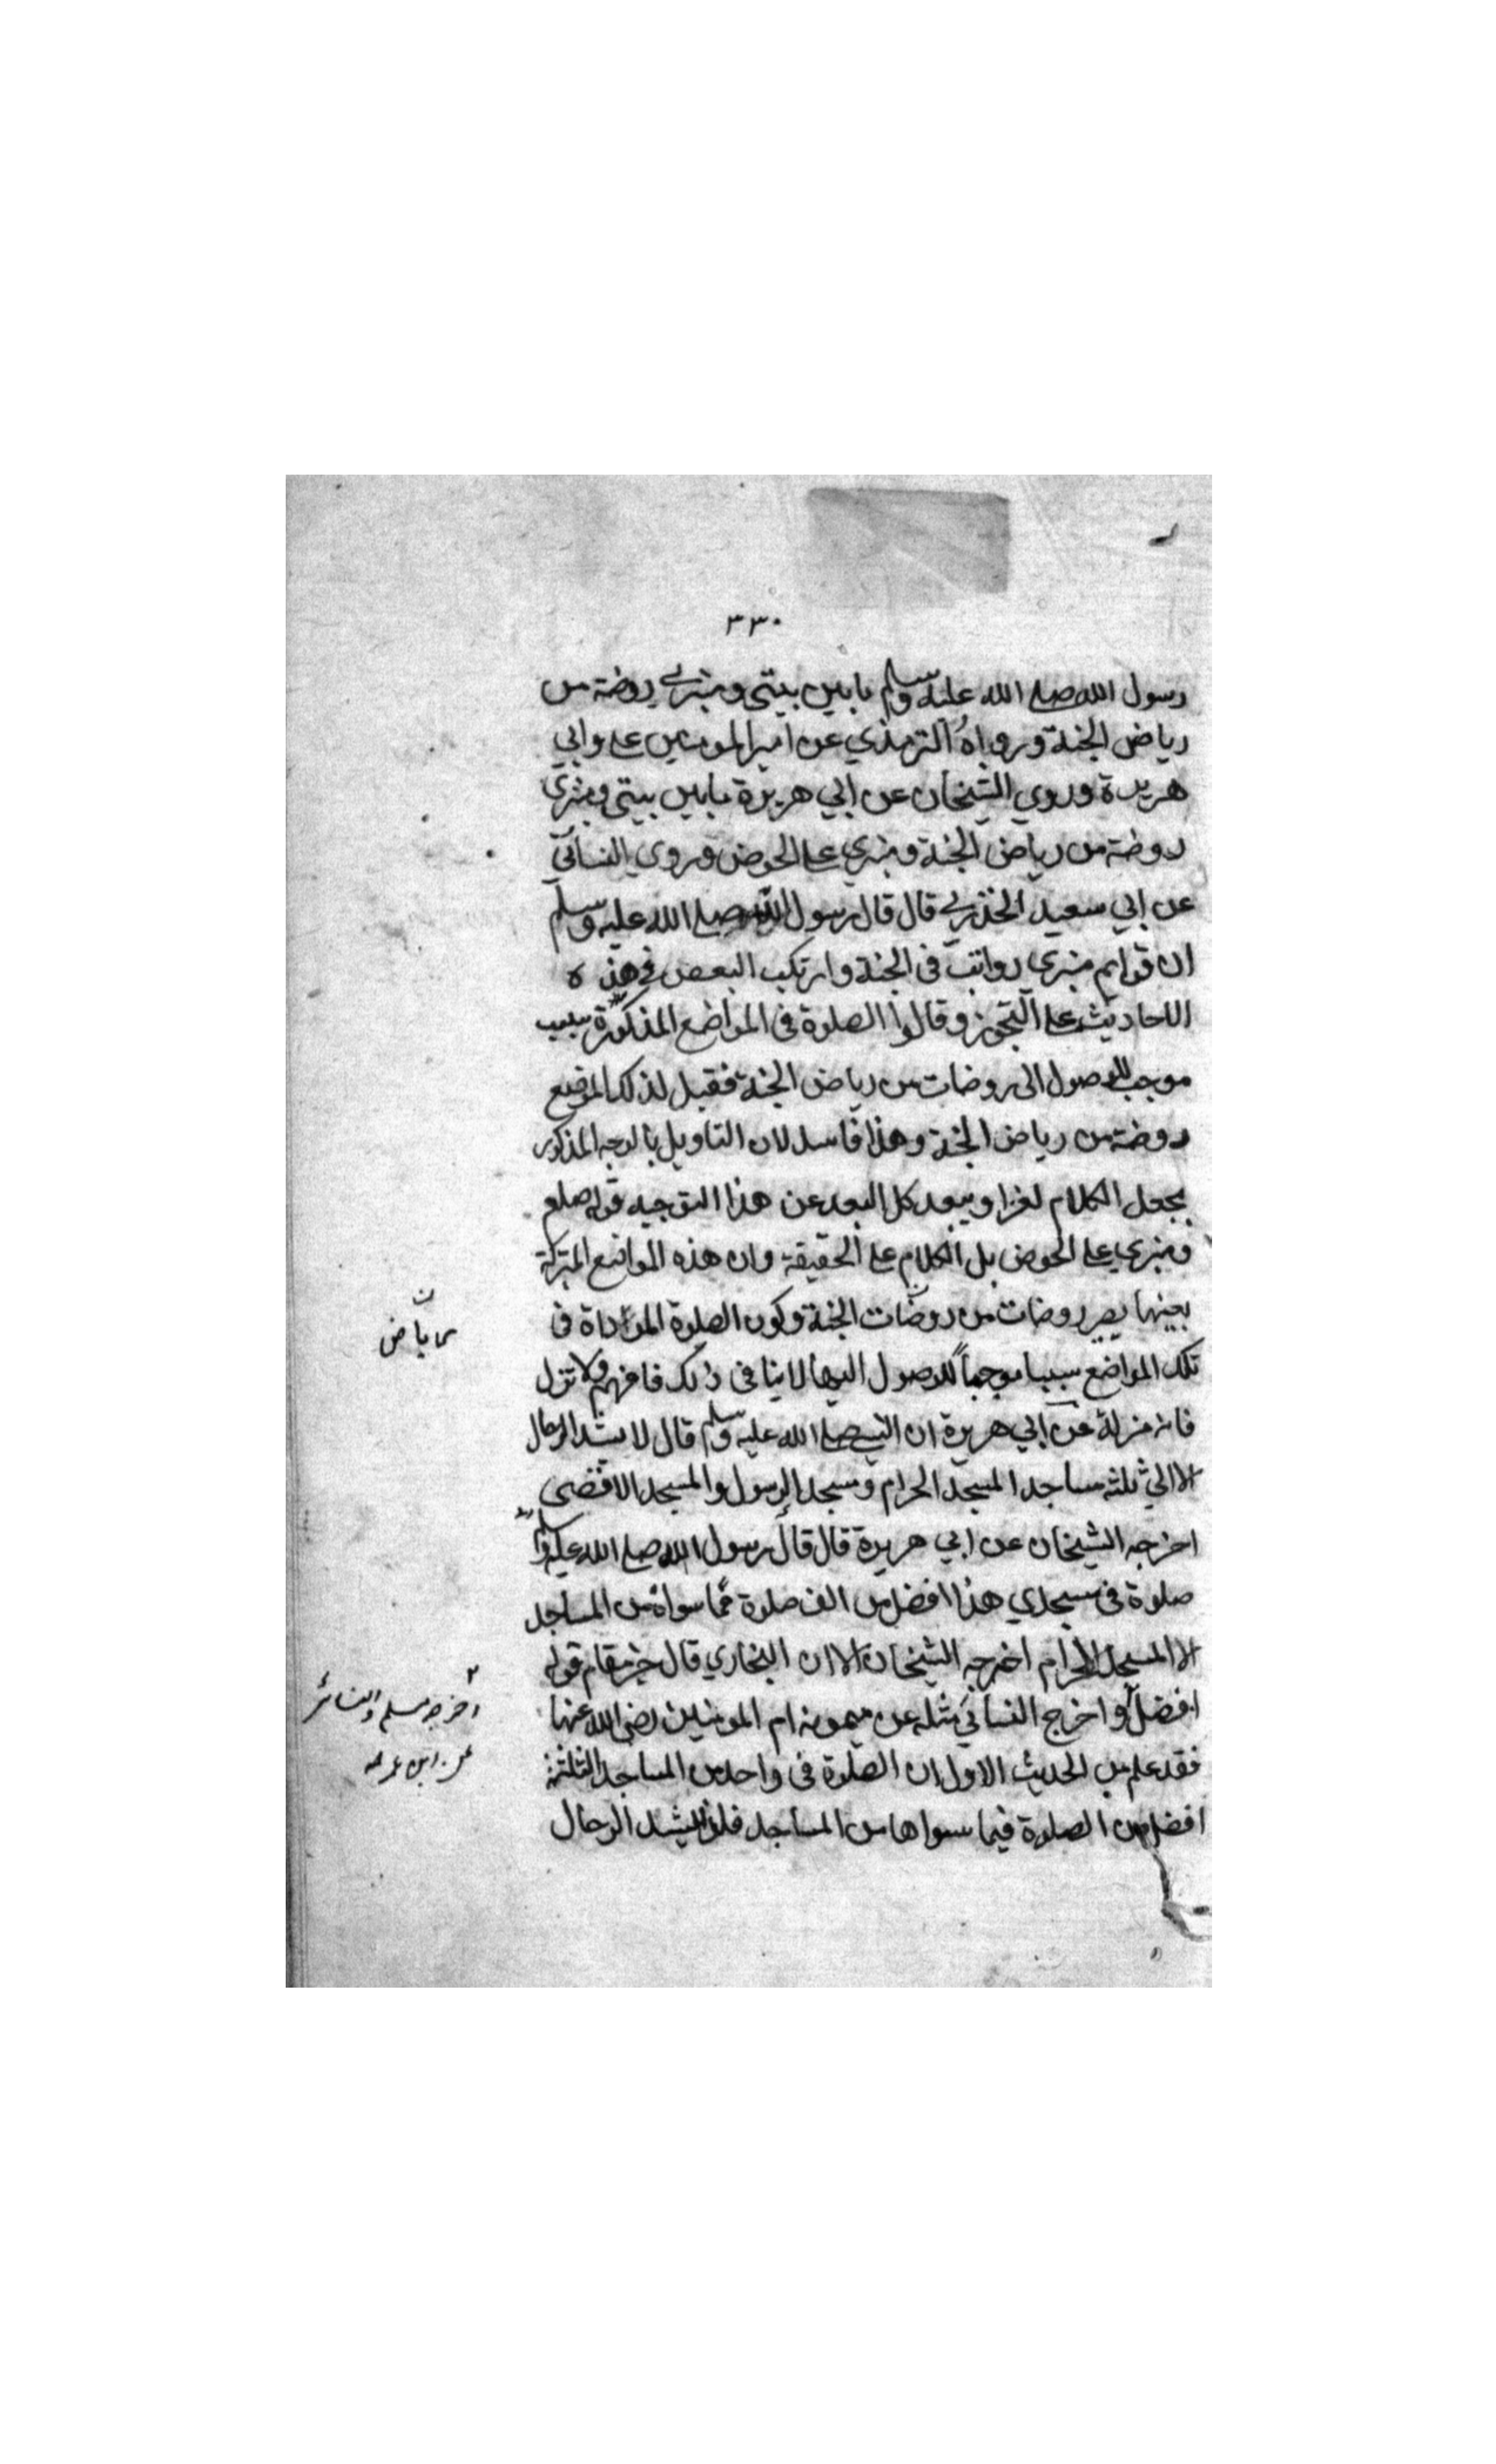 ٣٣٠
رسول الله صلى الله عليه وسلم ما بين بيتي ومنبري روضة من
رياض الجنة ورواه الترمذي عن امير المومنين على وابي
هريرة وروي الشيخان عن ابي هريرة ما بين بيتي ومنبري
روضة من رياض الجنة ومنبري على الحوض وروي النسآئي
عن ابي سعيد الخذري قال قال رسول الله صلى الله عليه وسلم
ان قوايم منبري رواتب في الجنة وارتكب البعض في هذه
الاحاديث على التجوز وقالوا الصلوة في المواضع المذكورة سبب
موجب للوصول الى روضات من رياض الجنة فقيل لذلك الموضع
روضة من رياض الجنة وهذا فاسد لان التاويل بالوجه المذكور
يجعل الكلام لغزا ويبعد كل البعد عن هذا التوجيه قوله صلعم
ومنبري على الحوض بل الكلام على الحقيقة وان هذه المواضع المتبركة
بعينها يصير روضات من روضات الجنة وكون الصلوة المؤداة في
رياض
تلك المواضع سببا موجباً للوصول اليها لا ينافي ذلك فافهم ولا تزل
فانه منزلة عن ابي هريرة ان النبي صلى الله عليه وسلم قال لا يشد الرحال
الا الي ثلثه مساجد المسجد الحرام ومسجد الرسول والمسجد الاقصى
اخرجه الشيخان عن ابي هريرة قال قال رسول الله صلى الله عليه وسلم
صلوة في مسجدي هذا افضل من الف صلوة مما سواه من المساجد
الا المسجد الحرام اخرجه الشيخان الا ان البخاري قال خير مقام قوله
افضل واخرج النسائي مثله عن ميمونه ام المومنين رضي الله عنها
اخرجه مسلم والنسائي
عن ابن عمر
فقد علم من الحديث الاول ان الصلوة في واحد من المساجد الثلثة
افضل من الصلوة فيما سواها من المساجد فلو يشد الرحال